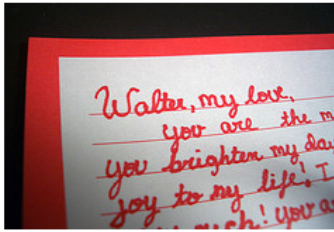 Walter, my love,
you are the
you brighten my day
joy to my life! I
much! you